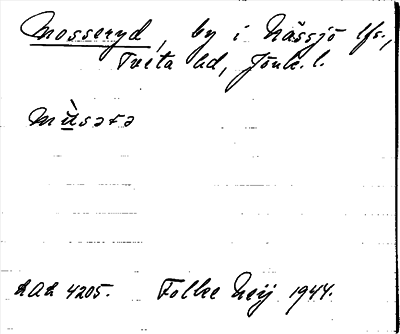 Mosseryd, by i Nässjö lfs.,
Tveta hd, Jönk. l.
mùsərə
LAL 4205. Folke Heij 1944.